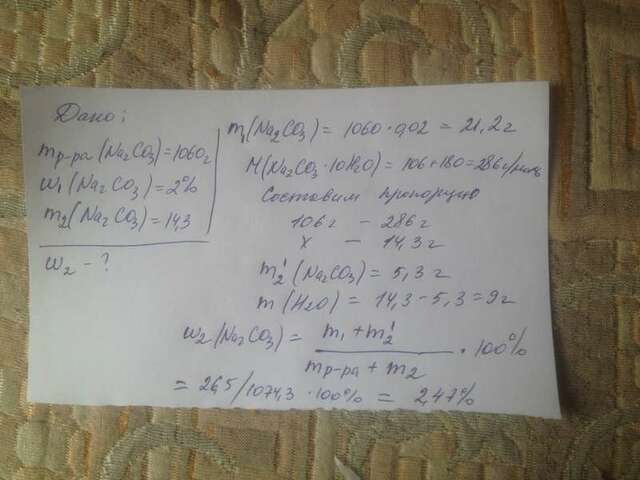 Дано:
mр-ра (Na2CO3) = 1060г
ω1 (Na2CO3) = 2%
m2 (Na2CO3) = 14,3
ω2 - ?
m1(Na2CO3) = 1060 · 0,02 = 21,2г
M(Na2CO3 · 10H2O) = 106 + 180 = 286г/моль
Составим пропорцию
106г – 286г
x – 14,3г
m2' (Na2CO3) = 5,3г
m (H2O) = 14,3 - 5,3 = 9г
ω2 (Na2CO3) = m1 + m2' / mр-ра + m2 · 100%
= 26,5/1074,3 · 100% = 2,47%